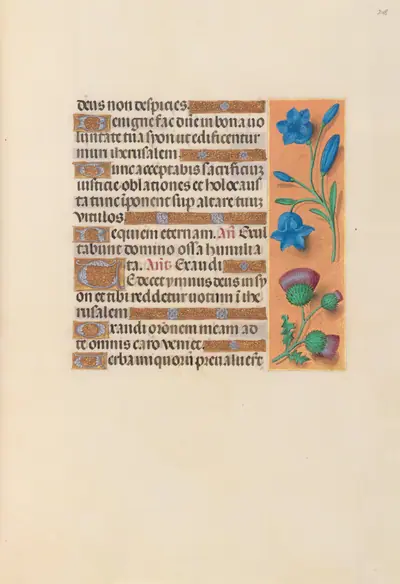 deus non despicies.
Benigne fac dñe in bona uo
luntate tua syon ut edificentur
muri iherusalem.
Tunc acceptabis sacrificiũ
iusticie oblationes et holocaus
ta tunc ĩponent sup altare tuũ
uitulos.
Requiem eternam. Añ. Exul
tabunt domino ossa humilia
ta. Añs. Exaudi
Te decet ymnus deus in sy
on et tibi reddetur uotum ĩ ihe
rusalem
Exaudi orõnem meam ad
te omnis caro veniet.
Verba iniquorũ preualuert̃